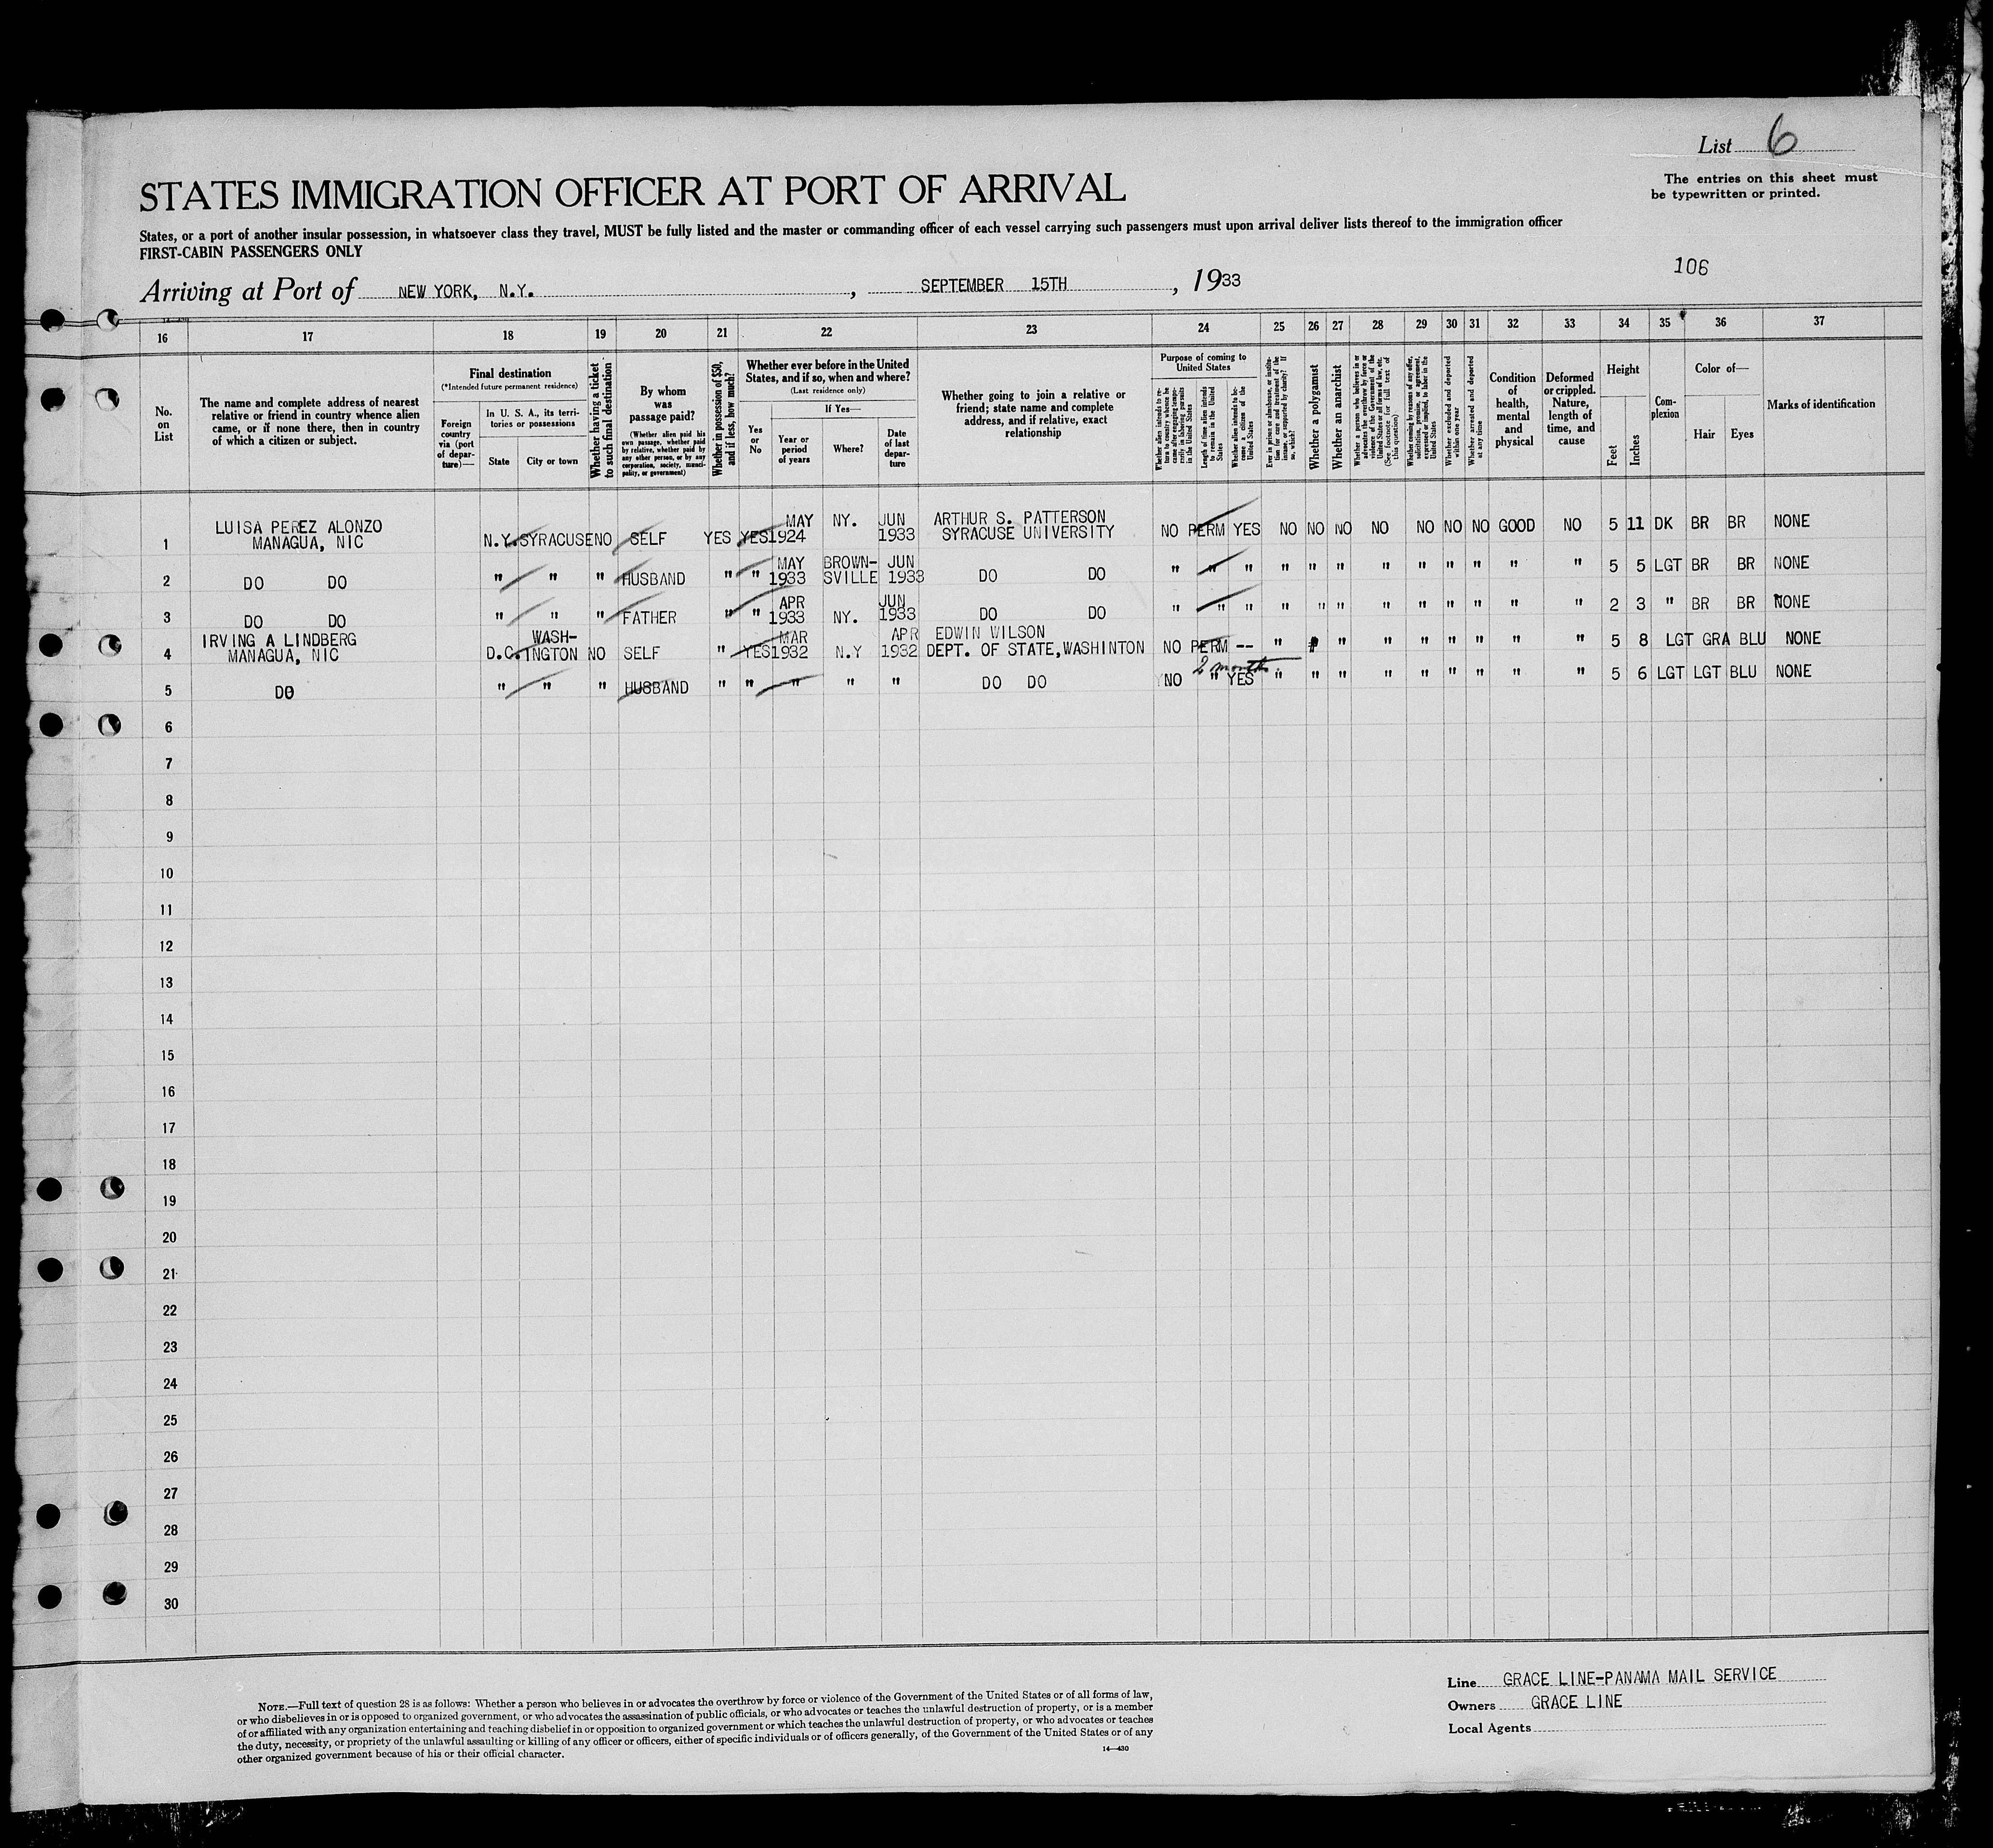 List 6
The entries on this sheet must
be typewritten or printed.
STATES IMMIGRATION OFFICER AT PORT OF ARRIVAL
States, or a port of another insular possession, in whatsoever class they travel, MUST be fully listed and the master or commanding officer of each vessel carrying such passengers must upon arrival deliver lists thereof to the immigration officer
FIRST-CABIN PASSENGERS ONLY
106
Arriving at Port of NEW YORK, N.Y. , SEPTEMBER 15TH , 1933
16 17 18 19 20 21 22 23 24 25 26 27 28 29 30 31 32 33 34 35 36 37
No. on List
The name and complete address of nearest
relative or friend in country whence alien
came, or if none there, then in country
of which a citizen or subject.
Final destination
(*Intended future permanent residence)
Foreign
country
via (port
of depar-
ture)—
In U. S. A., its terri-
tories or possessions
State City or town
Whether having a ticket
to such final destination
By whom
was
passage paid?
(Whether alien paid his
own passage, whether paid
by relative, whether paid by
any other person, or by any
corporation, society, munici-
pality, or government)
Whether in possession of $50,
and if less, how much?
Whether ever before in the United
States, and if so, when and where?
(Last residence only)
If Yes—
Yes
or
No
Year or
period
of years
Where?
Date
of last
depar-
ture
Whether going to join a relative or
friend; state name and complete
address, and if relative, exact
relationship
Purpose of coming to
United States
Whether alien intends to re-
turn to country whence he
came after engaging tempo-
rarily in laboring pursuits
in the United States
Length of time alien intends
to remain in the United
States
Whether alien intends to be-
come a citizen of the
United States
Ever in prison or almshouse, or institu-
tion for care and treatment of the
insane, or supported by charity? If
so, which?
Whether a polygamist
Whether an anarchist
Whether a person who believes in or
advocates the overthrow by force or
violence of the Government of the
United States or all forms of law, etc.
(See footnote for full text of
this question)
Whether coming by reasons of any offer,
solicitation, promise, or agreement,
expressed or implied, to labor in the
United States
Whether excluded and deported
within one year
Whether arrested and deported
at any time
Condition
of
health,
mental
and
physical
Deformed
or crippled.
Nature,
length of
time, and
cause
Height
Feet Inches
Com-
plexion
Color of—
Hair Eyes
Marks of identification
1 LUISA PEREZ ALONZO MANAGUA, NIC N.Y. SYRACUSE NO SELF YES YES MAY 1924 NY. JUN 1933 ARTHUR S. PATTERSON SYRACUSE UNIVERSITY NO PERM YES NO NO NO NO NO NO NO GOOD NO 5 11 DK BR BR NONE
2 DO DO " " " HUSBAND " " MAY 1933 BROWN-SVILLE JUN 1933 DO DO " " " " " " " " " " " " 5 5 LGT BR BR NONE
3 DO DO " " " FATHER " " APR 1933 NY. JUN 1933 DO DO " " " " " " " " " " " " 2 3 " BR BR NONE
4 IRVING A LINDBERG MANAGUA, NIC D.C. WASH-INGTON NO SELF " YES MAR 1932 N.Y APR 1932 EDWIN WILSON DEPT. OF STATE,WASHINTON NO PERM -- " " " " " " " " " 5 8 LGT GRA BLU NONE
2 months
5 DO " " " HUSBAND " " " " " DO DO NO " YES " " " " " " " " " 5 6 LGT LGT BLU NONE
6
7
8
9
10
11
12
13
14
15
16
17
18
19
20
21
22
23
24
25
26
27
28
29
30
NOTE.—Full text of question 28 is as follows: Whether a person who believes in or advocates the overthrow by force or violence of the Government of the United States or of all forms of law,
or who disbelieves in or is opposed to organized government, or who advocates the assassination of public officials, or who advocates or teaches the unlawful destruction of property, or is a member
of or affiliated with any organization entertaining and teaching disbelief in or opposition to organized government or which teaches the unlawful destruction of property, or who advocates or teaches
the duty, necessity, or propriety of the unlawful assaulting or killing of any officer or officers, either of specific individuals or of officers generally, of the Government of the United States or of any
other organized government because of his or their official character.
14—430
Line GRACE LINE-PANAMA MAIL SERVICE
Owners GRACE LINE
Local Agents